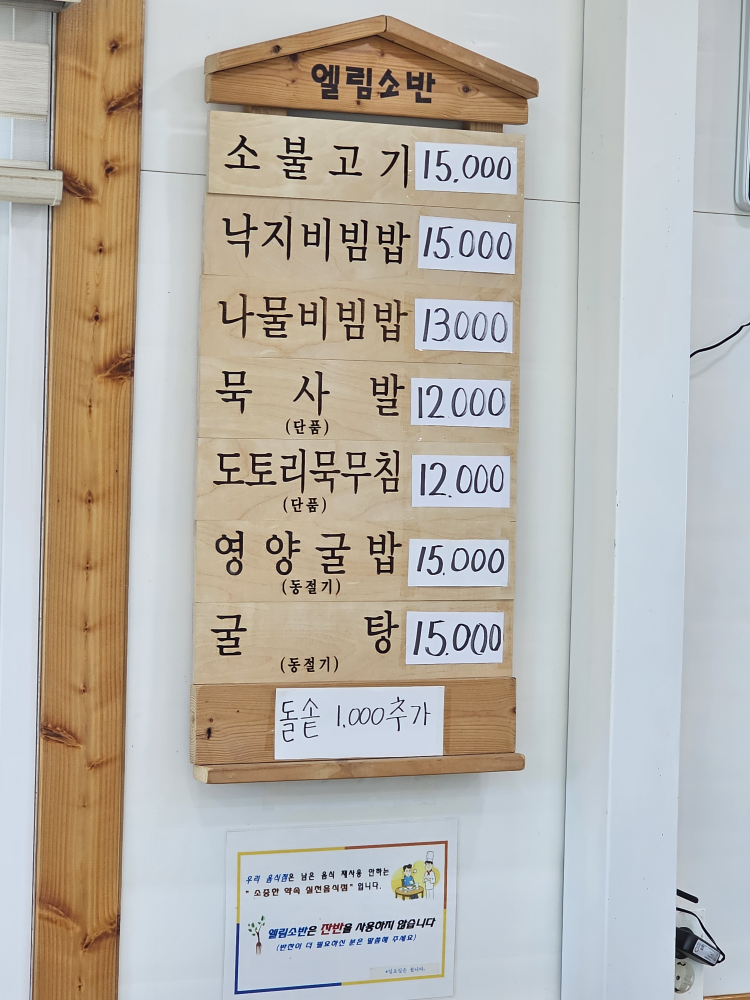 엘림소반
소불고기 15,000
낙지비빔밥 15.000
나물비빔밥 13000
묵사발 12000
(단품)
도토리묵무침 12.000
(단품)
영양굴밥 15.000
(동절기)
굴탕 15.000
(동절기)
돌솥 1.000추가
우리 음식점은 남은 음식 재사용 안하는
"소중한 약속 실천음식점" 입니다.
엘림소반은 잔반을 사용하지 않습니다
(반찬이 더 필요하신 분은 말씀해 주세요)